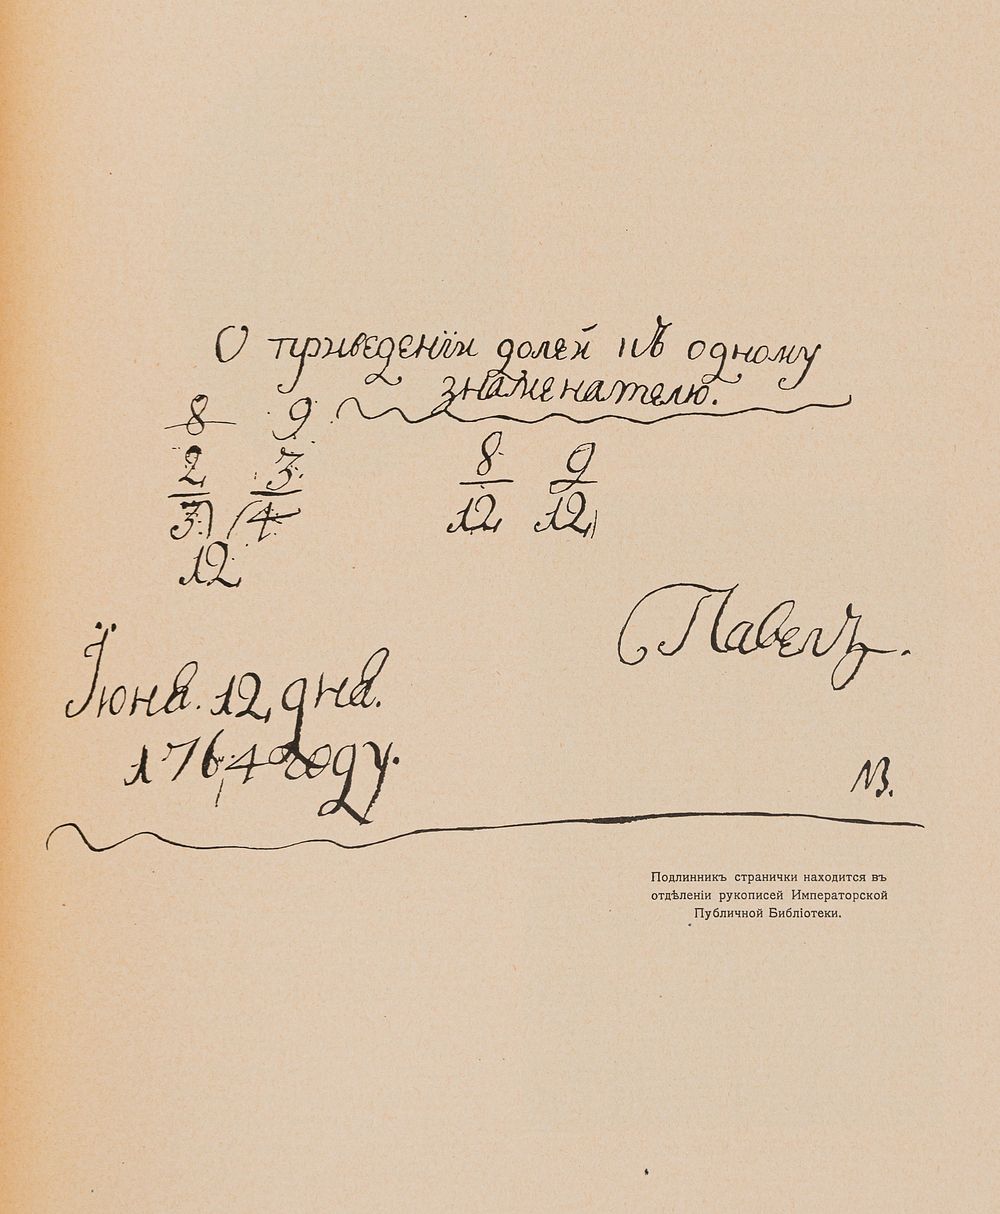 О приведенїи долей къ одному
знаменателю.
8 9
2 3 8 9
3 4 12 12
12
Павелъ.
Їюня. 12, дня.
1764 году.
№3.
Подлинникъ странички находится въ
отдѣленіи рукописей Императорской
Публичной Библіотеки.